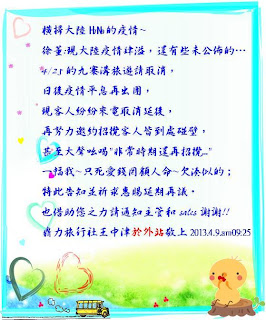 橫掃大陸 H7N9的疫情~
徐董:現大陸疫情肆溢,還有些未公佈的…
4/25的九寨溝旅遊請取消,
日後疫情平息再出團,
現客人紛紛來電取消延後,
再努力邀約招攬客人皆到處碰壁,
甚至大聲吆喝"非常時期還再招攬..."
我~只死愛錢罔顧人命~欠湊似的;
特此告知並祈求惠賜延期再議。
也借助您之力請通知主管和 sales 謝謝!!
力旅行社王中津於外站敬上 2013.4.9.am09:25